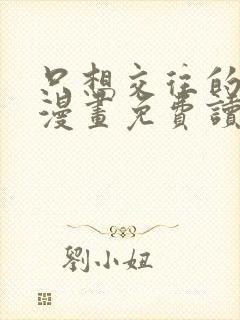 只想交往的
漫畫免費讀
劉小妞